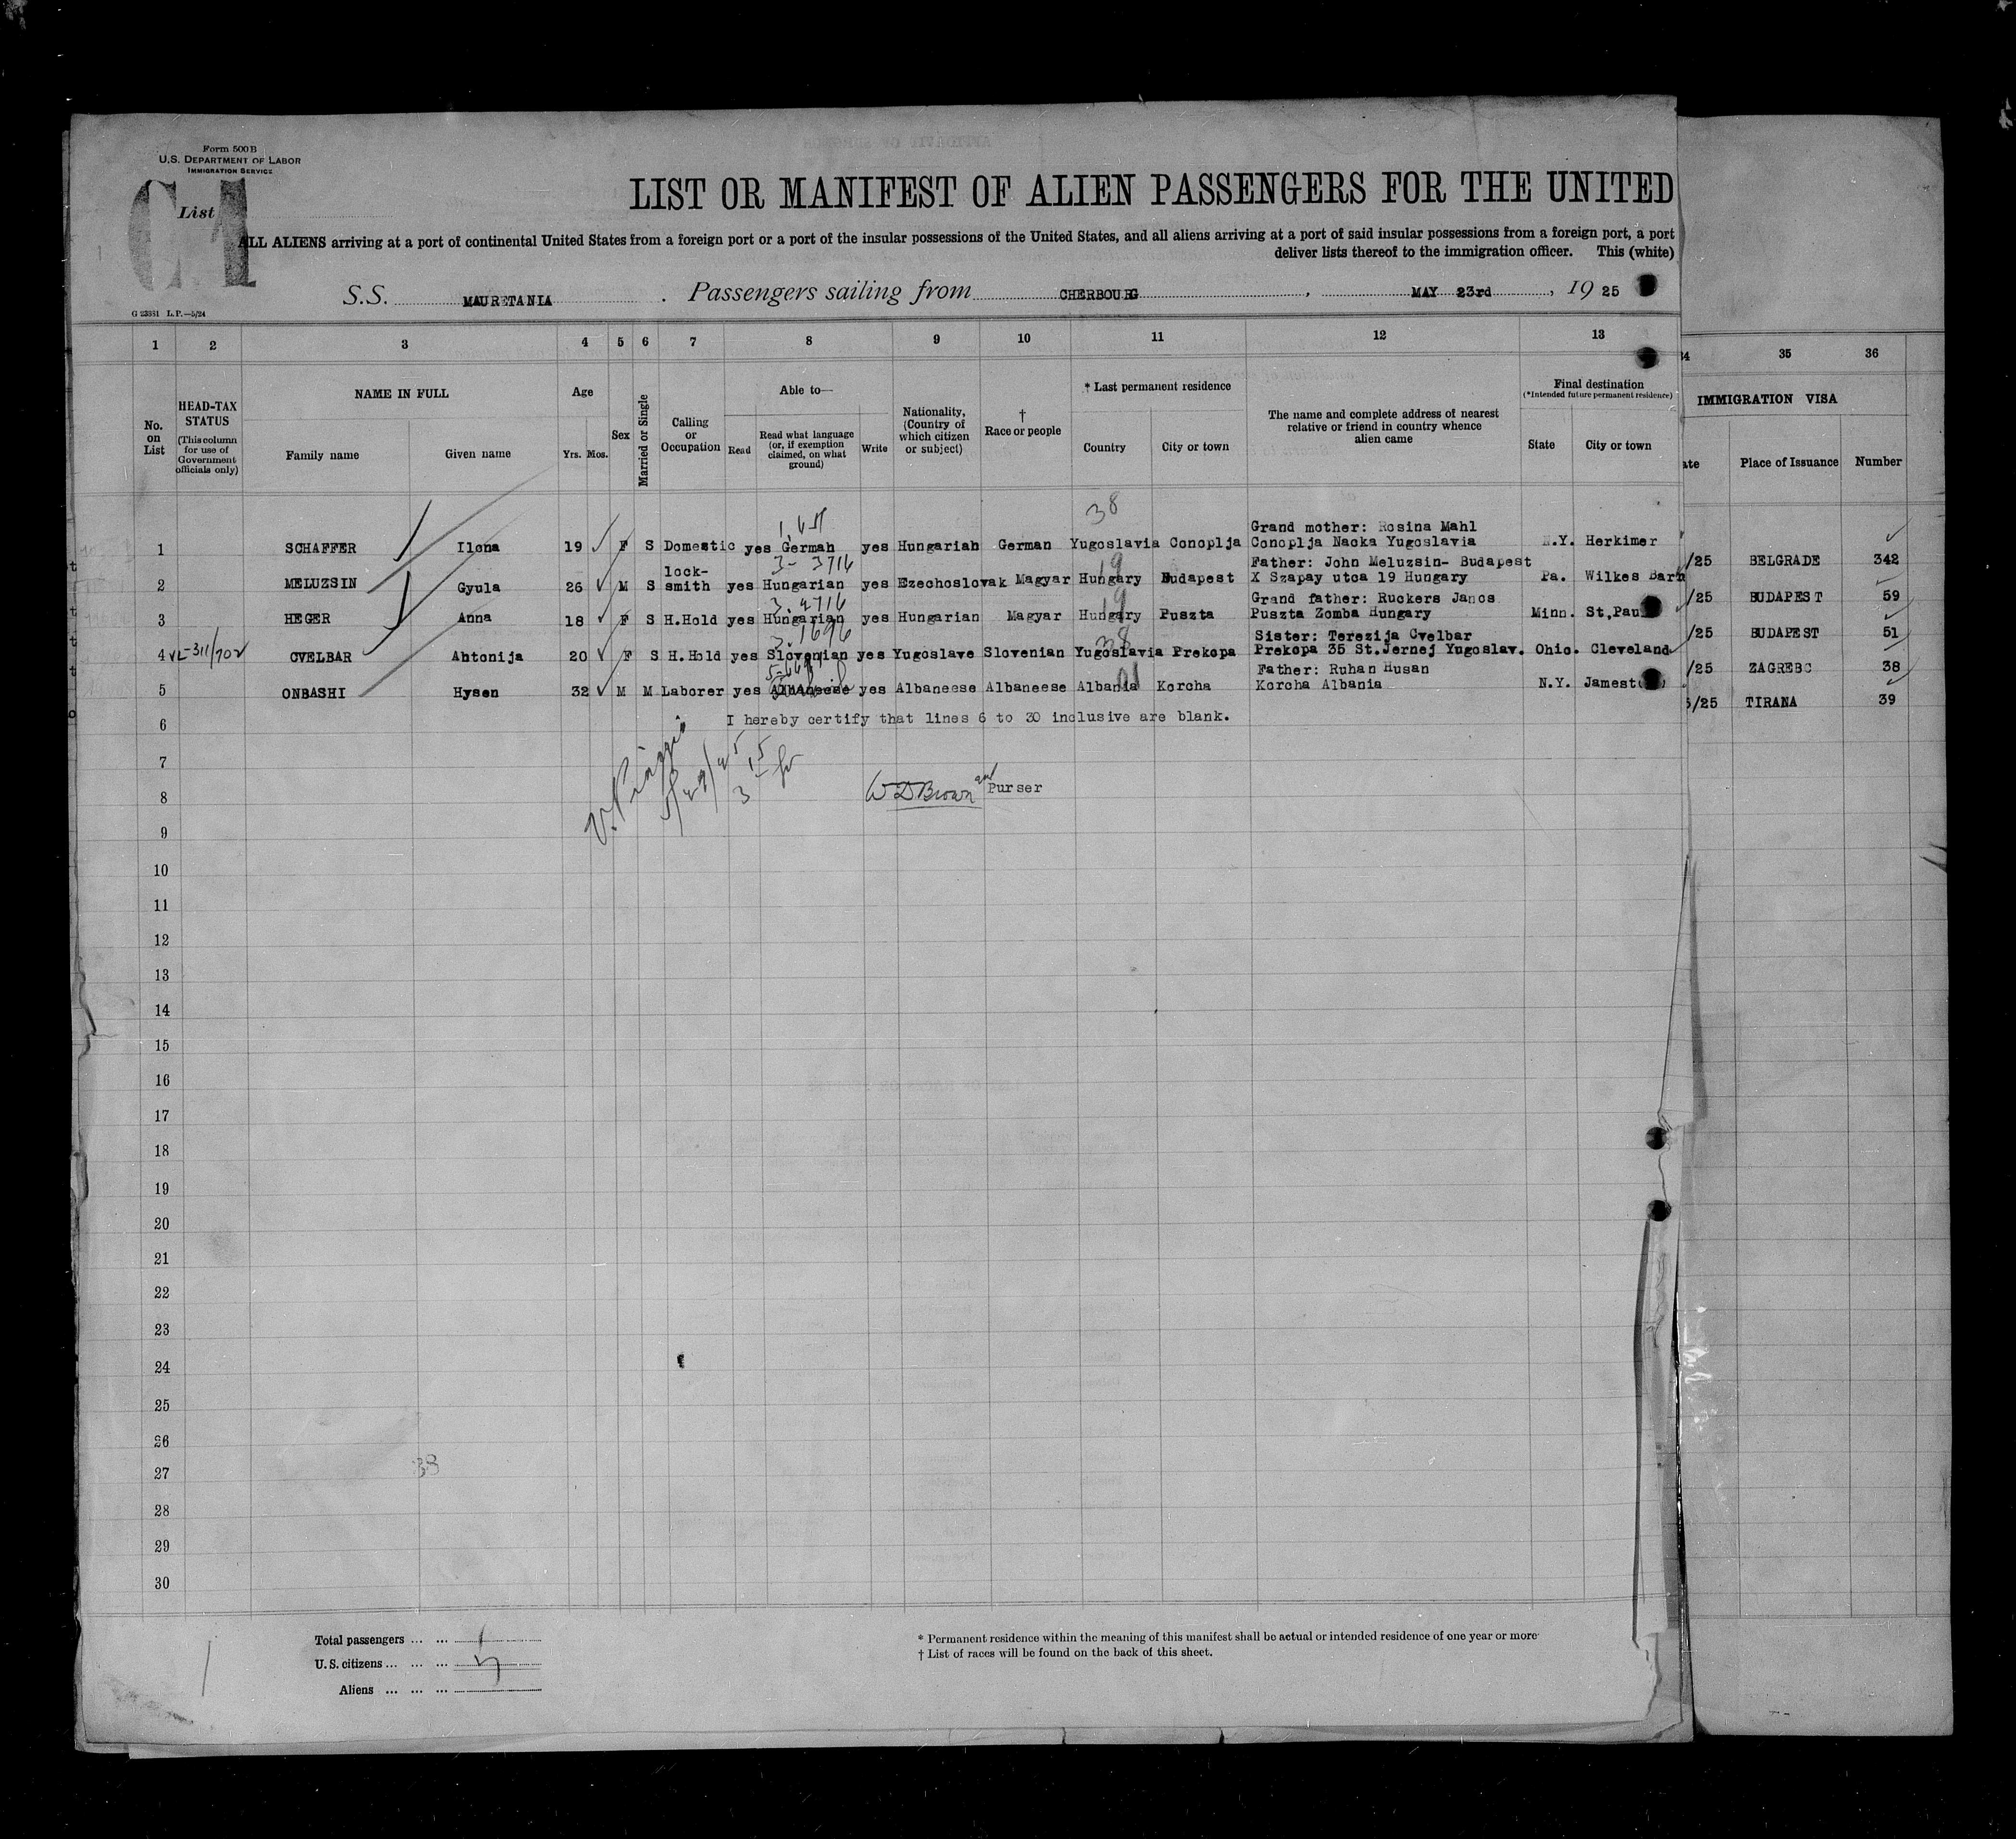 Form 500B
U.S. DEPARTMENT OF LABOR
IMMIGRATION SERVICE
List
LIST OR MANIFEST OF ALIEN PASSENGERS FOR THE UNITED
ALL ALIENS arriving at a port of continental United States from a foreign port or a port of the insular possessions of the United States, and all aliens arriving at a port of said insular possessions from a foreign port, a port
deliver lists thereof to the immigration officer. This (white)
S.S. MAURETANIA . Passengers sailing from CHERBOURG , MAY 23rd , 19 25
G 23881 L.P.—5/24
1 2 3 4 5 6 7 8 9 10 11 12 13 34 35 36
No. on List
HEAD-TAX STATUS
(This column for use of Government officials only)
NAME IN FULL
Family name Given name
Age
Yrs. Mos.
Sex
Married or Single
Calling or Occupation
Able to—
Read
Read what language (or, if exemption claimed, on what ground)
Write
Nationality, (Country of which citizen or subject)
† Race or people
* Last permanent residence
Country City or town
The name and complete address of nearest relative or friend in country whence alien came
Final destination
(*Intended future permanent residence)
State City or town
IMMIGRATION VISA
ate Place of Issuance Number
38
Grand mother: Rosina Mahl
1 SCHAFFER Ilona 19 F S Domestic yes German yes Hungarian German Yugoslavia Conoplja Conoplja Nacka Yugoslavia N.Y. Herkimer
/25 BELGRADE 342
3- 3716
lock-
Father: John Meluzsin- Budapest
2 MELUZSIN Gyula 26 M S smith yes Hungarian yes Ezechoslovak Magyar Hungary Budapest X Szapay utca 19 Hungary Pa. Wilkes Barh
19
/25 BUDAPEST 59
Grand father: Ruckers Janos
3 HEGER Anna 18 F S H.Hold yes Hungarian yes Hungarian Magyar Hungary Puszta Puszta Zomba Hungary Minn. St,Pau
19
/25 BUDAPEST 51
Sister: Terezija Cvelbar
4 CVELBAR Antonija 20 F S H.Hold yes Slovenian yes Yugoslave Slovenian Yugoslavia Prekopa Prekopa 35 St.Jernej Yugoslav. Ohio. Cleveland
38
/25 ZAGREBC 38
Father: Ruhan Husan
5 ONBASHI Hysen 32 M M Laborer yes Albaneese yes Albaneese Albaneese Albania Korcha Korcha Albania N.Y. Jamest
/25 TIRANA 39
6 I hereby certify that lines 6 to 30 inclusive are blank.
7
8 W D Brown Purser
9
10
11
12
13
14
15
16
17
18
19
20
21
22
23
24
25
26
27
28
29
30
Total passengers ... ...
U.S. citizens ... ... ...
Aliens ... ... ...
* Permanent residence within the meaning of this manifest shall be actual or intended residence of one year or more
† List of races will be found on the back of this sheet.